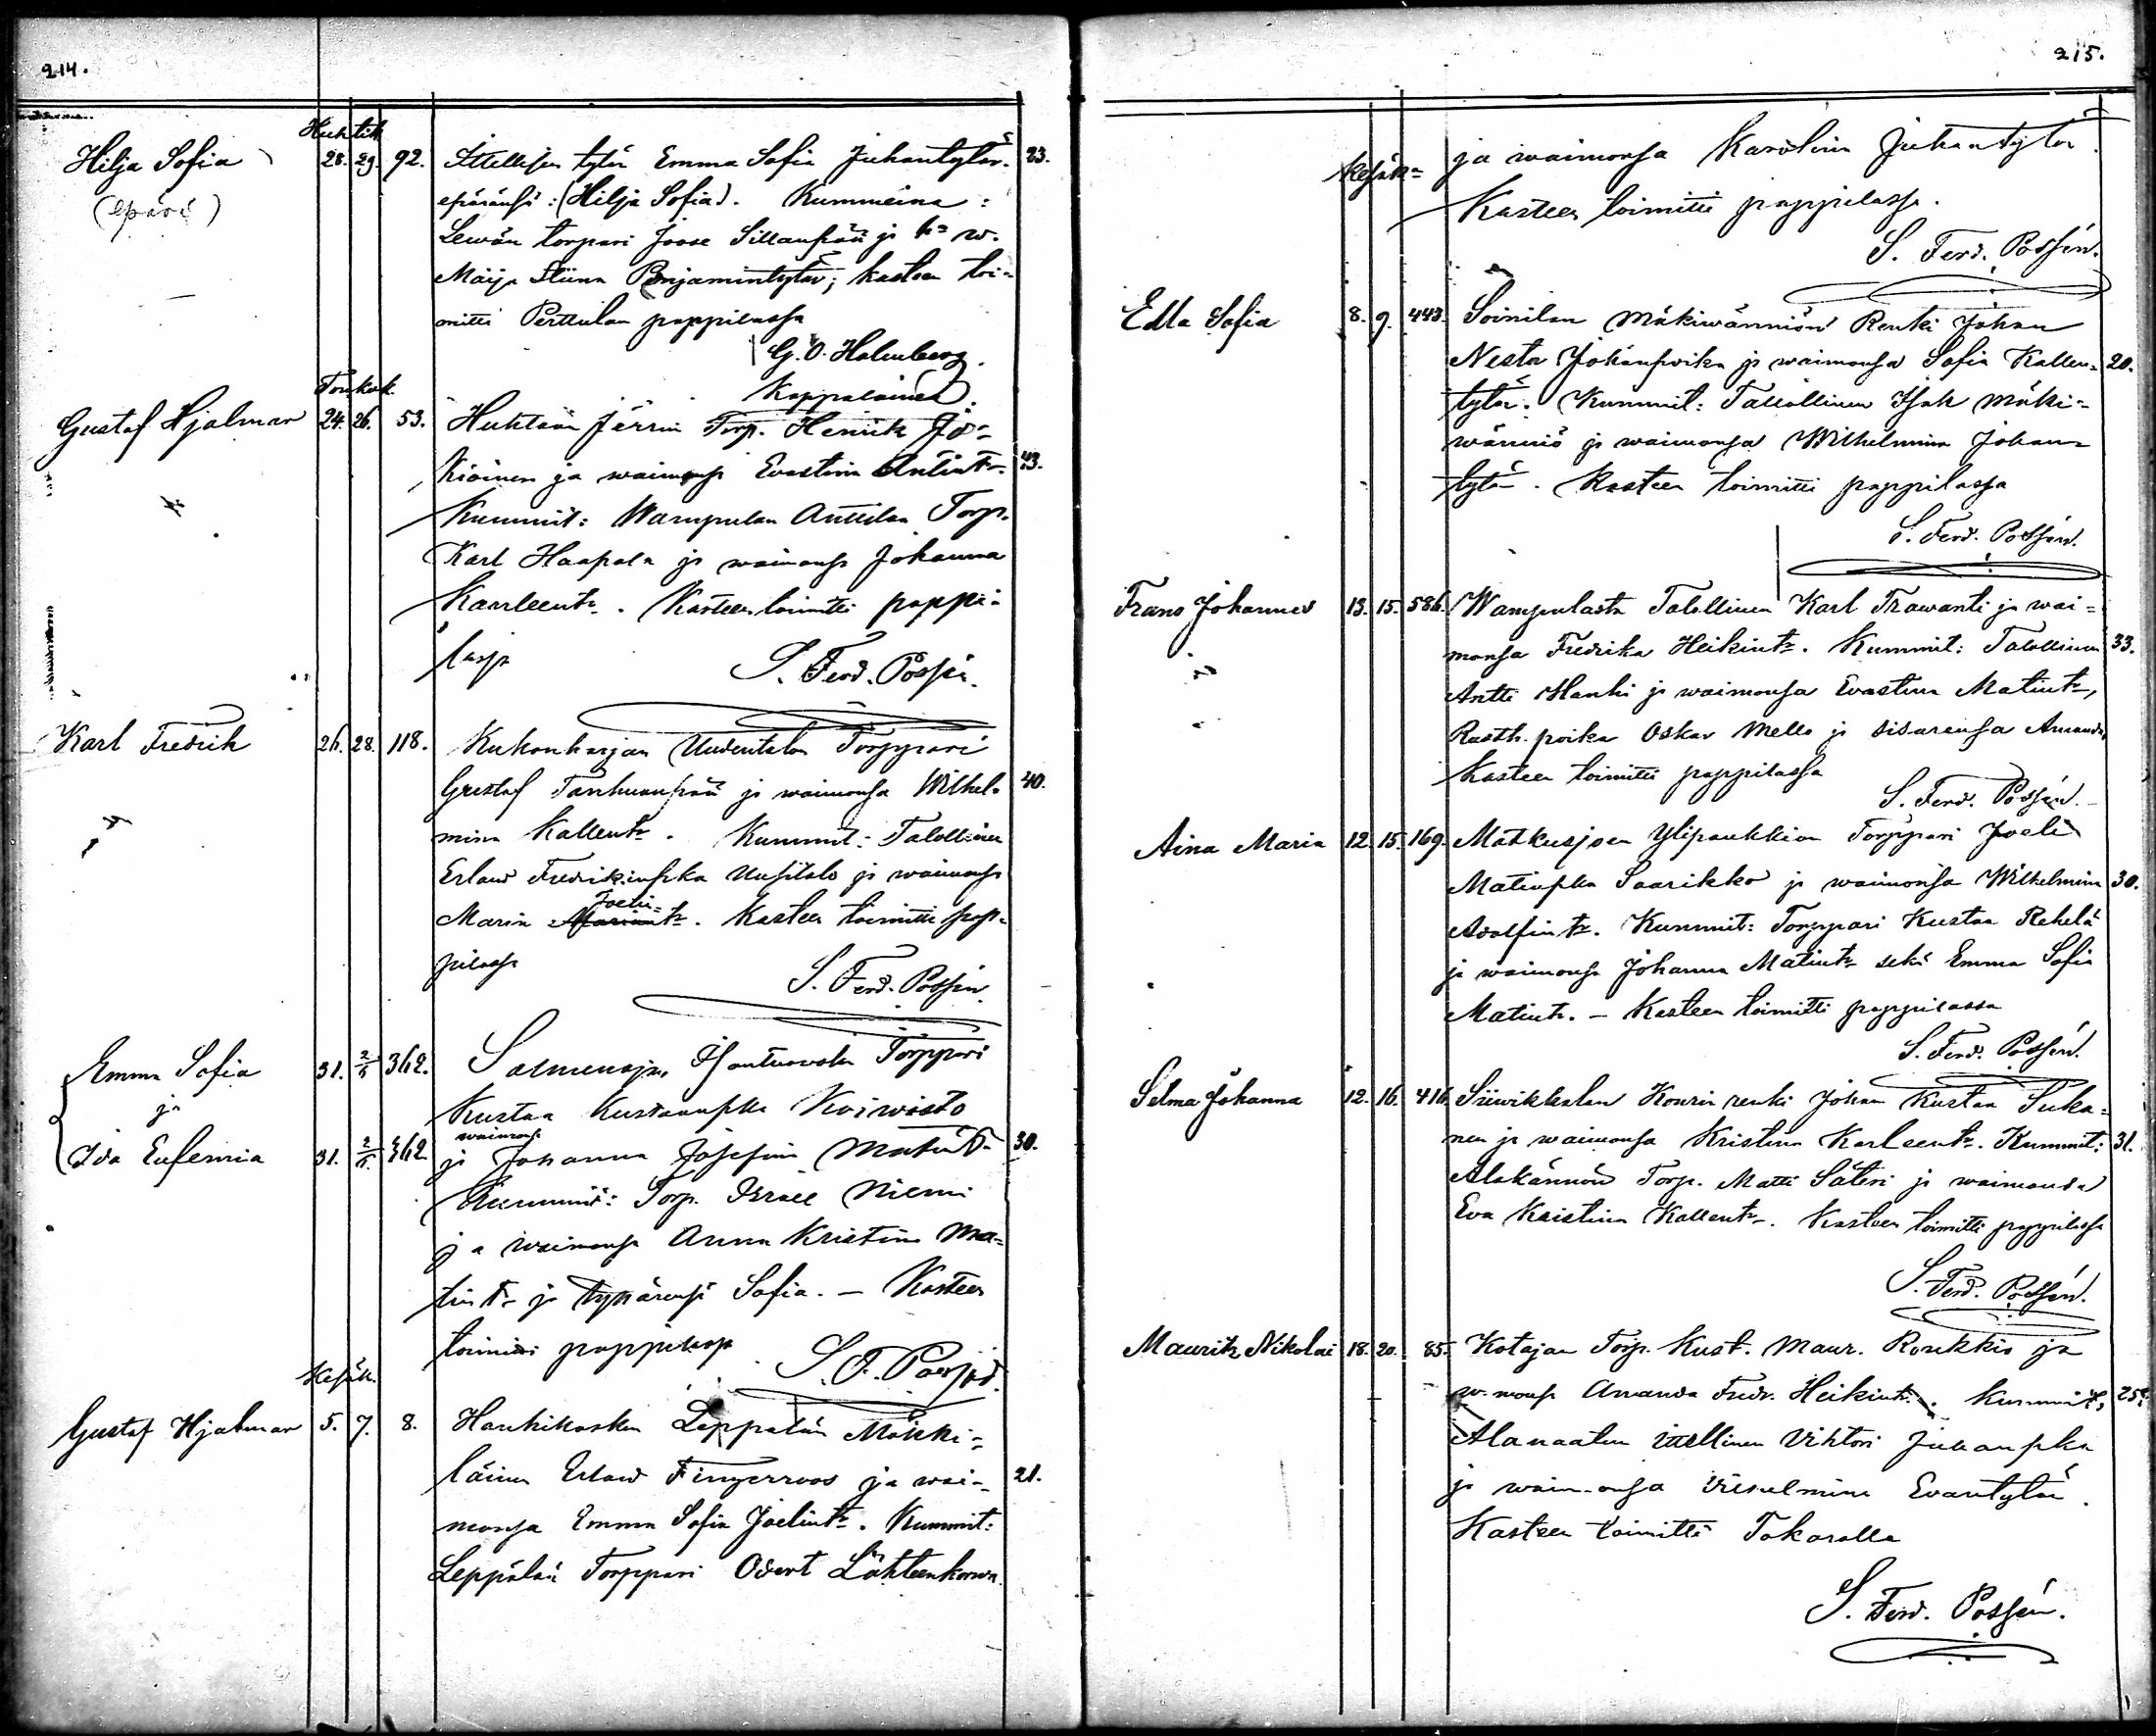 214.
Huhtik
Hilja Sofia 28. 29. 92. Itellisen tytön Emma Sofia Juhantytär. 23.
(epärä) epäränsä: (Hilja Sofia). Kummeina:
Lewän torpari Joose Sillanpää ja h:n w.
Maija Stiina Benjamintytär; kasteen toi-
mitti Perttulan pappilassa
G. O. Holmberg.
Kappalainen.
Toukok.
Gustaf Hjalmar 24. 26. 53. Huhtaan Järvin Torp. Henrik Jo-
kioinen ja waimonsa Evastina Antint:r 43.
Kummit: Wampulan Anttilan Torp.
Karl Haapala ja waimonsa Johanna
Kaarleent:r. Kasteen toimitti pappi-
lassa S. Ferd. Possén.
Karl Fredrik 26. 28. 118. Kukonharjan Uudentalon Torppari
Gustaf Tanhuanpää ja waimonsa Wilhel- 40.
mina Kalleent:r. Kummit: Talollinen
Erland Fredrikinpka Uusitalo ja waimonsa
Maria Joelin-t:r. Kasteen toimitti pap-
pilassa
S. Ferd. Possén.
Emma Sofia 31. 2/6 362. Salmenojan Torppari
ja Kustaa Kustaanpka Koiwisto
Ida Eufemia 31. 2/6. 362 ja waimonsa Johanna Josefina Matint:r 30.
Kummit: Torp. Israel Niemi
ja waimonsa Anna Kristina Ma-
tint:r ja tyttärensä Sofia. — Kasteen
toimitti pappilassa S. F. Possén.
Kesäk.
Gustaf Hjalmar 5. 7. 8. Hanhikosken Leppälän Mökki-
läinen Erland Fingerroos ja wai- 21.
monsa Emma Sofia Joelint:r. Kummit:
Leppälän Torppari Odert Lähteenkorwa
215.
Kesäk= ja waimonsa Karolina Juhantytär.
Kasteen toimitti pappilassa.
S. Ferd. Possén.
Edla Sofia 8. 9. 443. Soinilan Mäkiwänniön Renki Johan
Nestor Johanpoika ja waimonsa Sofia Kallen- 20.
tytär. Kummit: Talollinen Isak Mäki-
wänniö ja waimonsa Wilhelmina Johan-
tytär. Kasteen toimitti pappilassa
S. Ferd. Possén.
Frans Johannes 13. 15. 586. Wampulasta Talollinen Karl Trawanti ja wai-
monsa Fredrika Heikint:r. Kummit: Talollinen 33.
Antti Hanhi ja waimonsa Evastina Matint:r,
Rusth. poika Oskar Mello ja sisarensa Amanda,
Kasteen toimitti pappilassa
S. Ferd. Possén.
Aina Maria 12. 15. 169. Matkusjoen Ylipaukkion Torppari Joeli
Matinpka Saarikko ja waimonsa Wilhelmina 30.
Adolfint:r. Kummit: Torppari Kustaa Rehelä
ja waimonsa Johanna Matint:r sekä Emma Sofia
Matint:r. — Kasteen toimitti pappilassa
S. Ferd. Possén.
Selma Johanna 12. 16. 416. Siiwikkalan Kourin renki Johan Kustaa Suka-
nen ja waimonsa Kristina Karleent:r. Kummit: 31.
Alakännön Torp. Matti Säteri ja waimonsa
Eva Kristina Kalleent:r. Kasteen toimitti pappilassa
S. Ferd. Possén.
Mauritz Nikolai 18. 20. 85. Kotajan Torp. Kust. Maur. Roukkio ja
w.monsa Amanda Fredr. Heikint:r. Kummit: 25
Alanaatun Itellinen Vihtori Juhanpka
ja waimonsa Vilhelmina Evantytär.
Kasteen toimitti Tokoralla
S. Ferd. Possén.